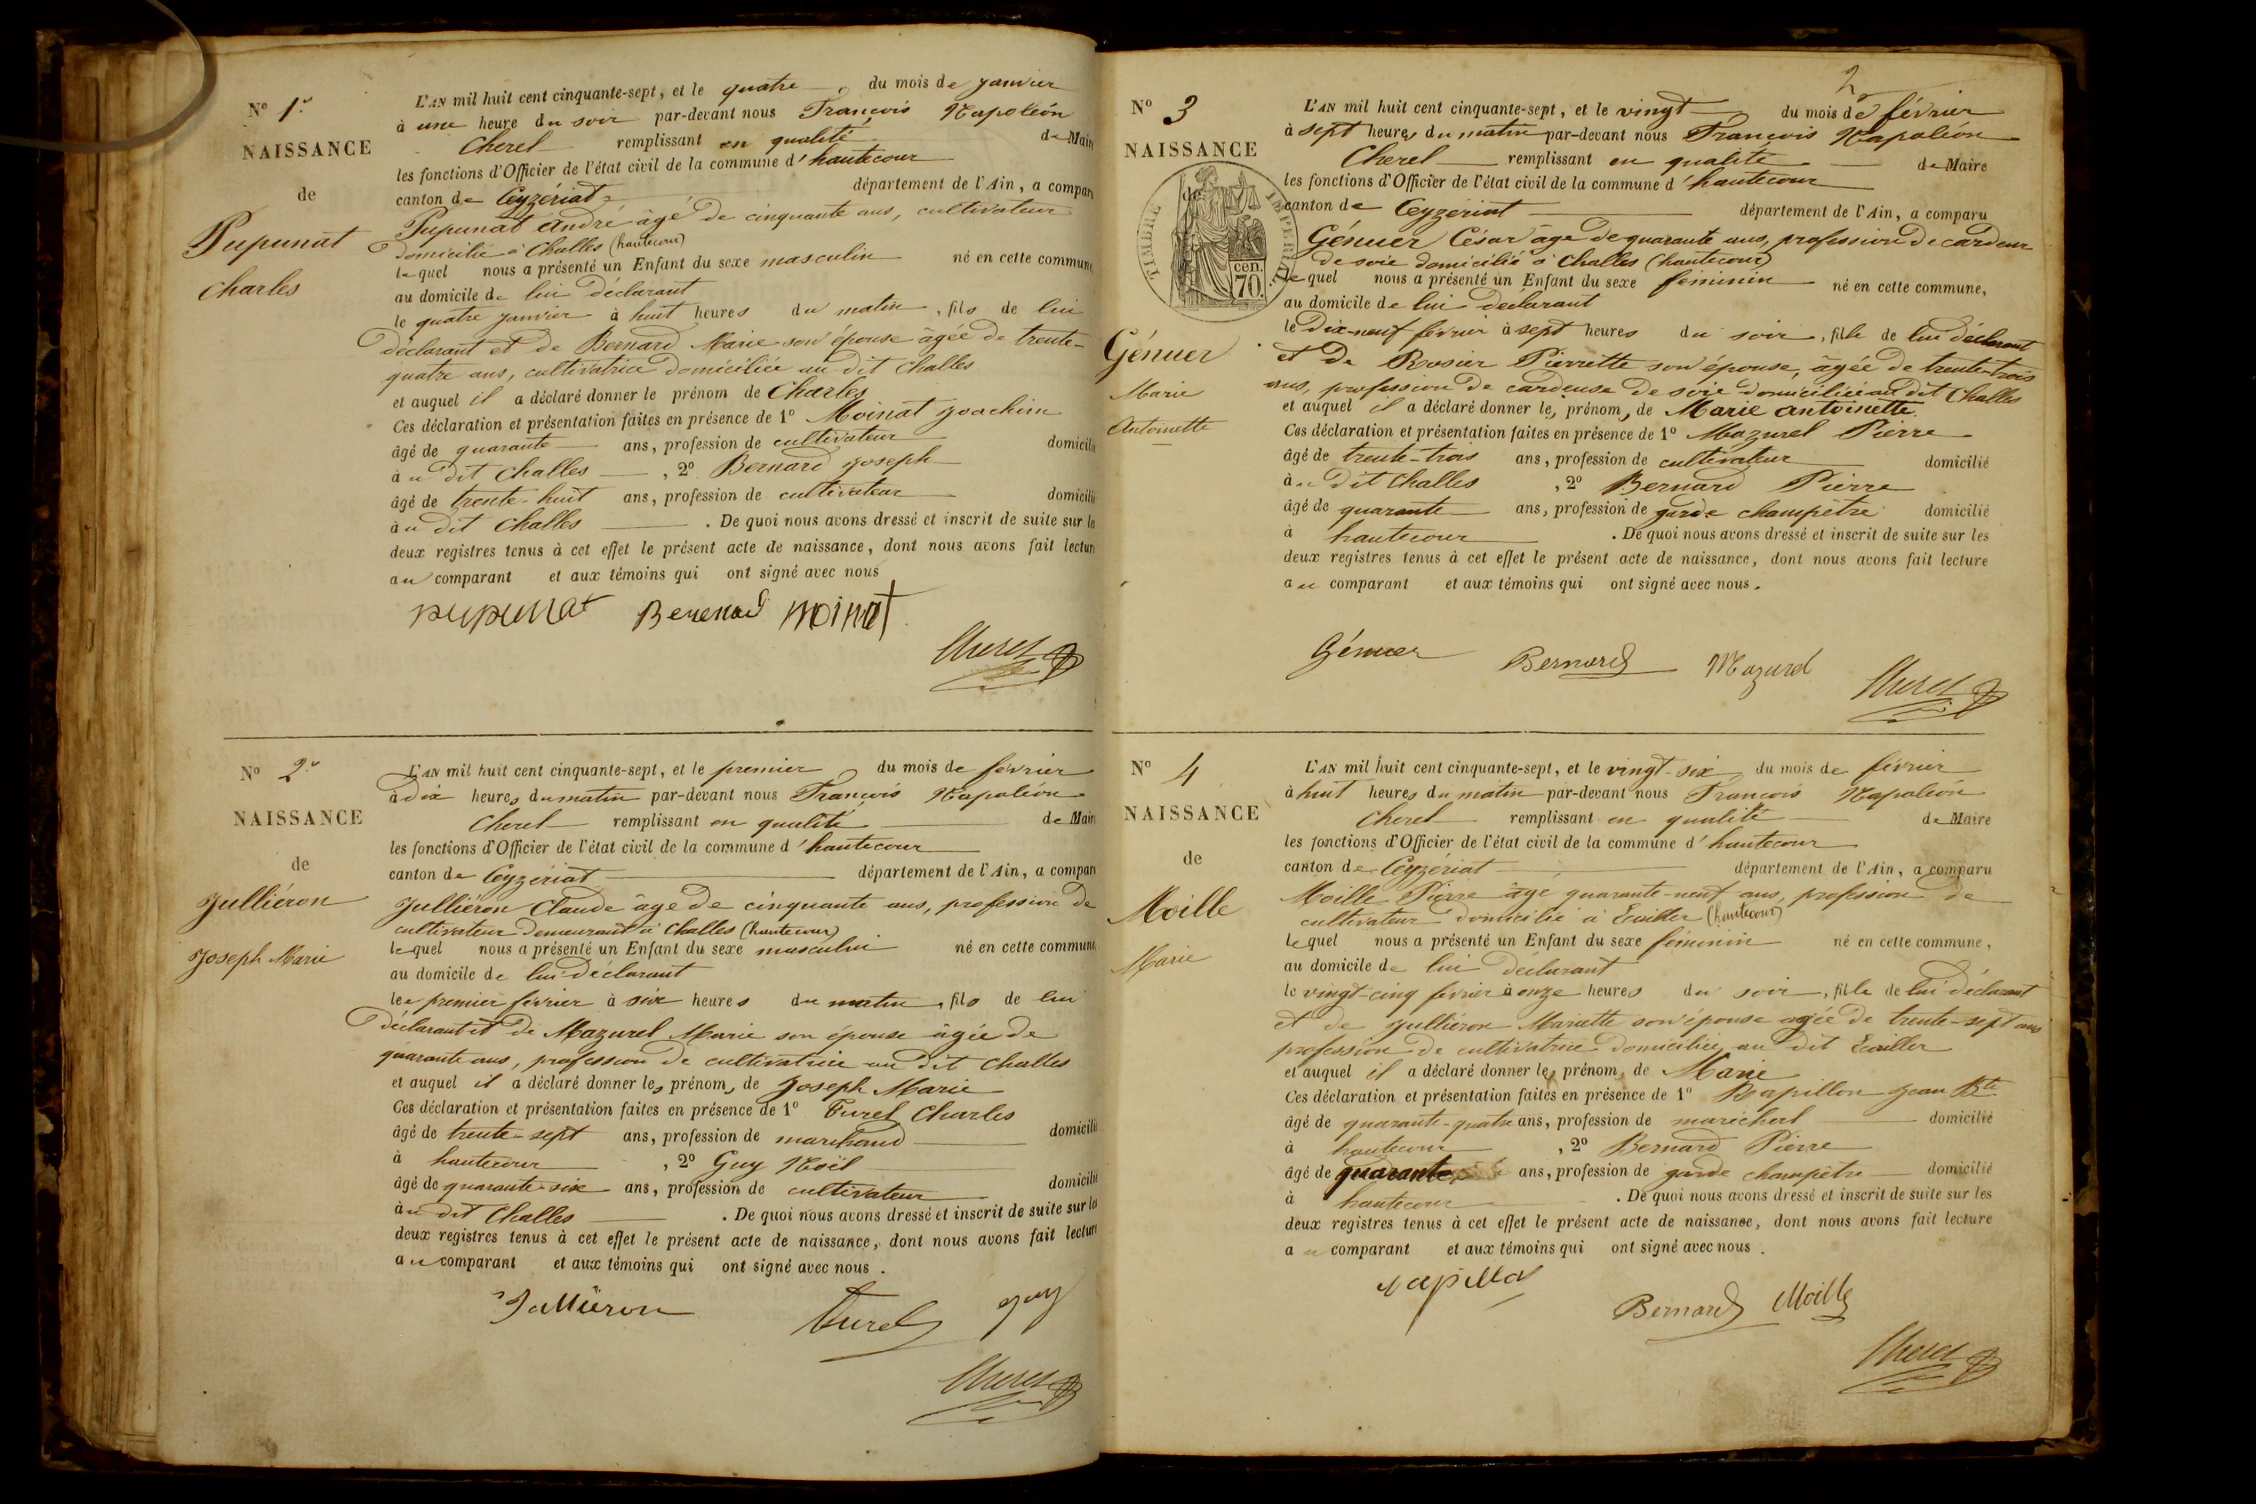 N° 1er
NAISSANCE
de
Pupunat
Charles
L'AN mil huit cent cinquante-sept, et le quatre du mois de janvier
à une heure du soir par-devant nous François Napoléon
Cherel remplissant en qualité de Maire
les fonctions d'Officier de l'état civil de la commune d'hautecour
canton de Ceyzériat département de l'Ain, a comparu
Pupunat André âgé de cinquante ans, cultivateur
domicilié à Challes (hautecour)
lequel nous a présenté un Enfant du sexe masculin né en cette commune,
au domicile de lui déclarant
le quatre janvier à huit heures du matin, fils de lui
déclarant et de Bernard Marie son épouse âgée de trente-
quatre ans, cultivatrice domiciliée au dit Challes
et auquel il a déclaré donner le prénom de Charles
Ces déclaration et présentation faites en présence de 1° Moinat Joachim
âgé de quarante ans, profession de cultivateur domicilié
au dit Challes, 2° Bernard Joseph
âgé de trente-huit ans, profession de cultivateur domicilié
au dit Challes. De quoi nous avons dressé et inscrit de suite sur les
deux registres tenus à cet effet le présent acte de naissance, dont nous avons fait lecture
au comparant et aux témoins qui ont signé avec nous
pupunat Berenard moinat
Cherel
N° 2e
NAISSANCE
de
Julliéron
Joseph Marie
L'AN mil huit cent cinquante-sept, et le premier du mois de février
à dix heures du matin par-devant nous François Napoléon
Cherel remplissant en qualité de Maire
les fonctions d'Officier de l'état civil de la commune d'hautecour
canton de Ceyzériat département de l'Ain, a comparu
Julliéron Claude âgé de cinquante ans, profession de
cultivateur demeurant à Challes (hautecour)
lequel nous a présenté un Enfant du sexe masculin né en cette commune,
au domicile de lui déclarant
le premier février à six heures du matin, fils de lui
déclarant et de Mazurel Marie son épouse âgée de
quarante ans, profession de cultivatrice au dit Challes
et auquel il a déclaré donner les prénoms de Joseph Marie
Ces déclaration et présentation faites en présence de 1° Turel Charles
âgé de trente-sept ans, profession de marchand domicilié
à hautecour, 2° Guy Noël
âgé de quarante-six ans, profession de cultivateur domicilié
au dit Challes. De quoi nous avons dressé et inscrit de suite sur les
deux registres tenus à cet effet le présent acte de naissance, dont nous avons fait lecture
au comparant et aux témoins qui ont signé avec nous.
Julliéron Turel guy
Cherel
2
N° 3
NAISSANCE
de
TIMBRE IMPERIAL
70 cen.
Génuer
Marie
Antoinette
L'AN mil huit cent cinquante-sept, et le vingt du mois de février
à sept heures du matin par-devant nous François Napoléon
Cherel remplissant en qualité de Maire
les fonctions d'Officier de l'état civil de la commune d'hautecour
canton de Ceyzériat département de l'Ain, a comparu
Génuer César âgé de quarante ans, profession de cardeur
de soie domicilié à Challes (hautecour)
lequel nous a présenté un Enfant du sexe féminin né en cette commune,
au domicile de lui déclarant
le dix-neuf février à sept heures du soir, fille de lui déclarant
et de Rosier Pierrette son épouse, âgée de trente-trois
ans, profession de cardeuse de soie domiciliée au dit Challes
et auquel il a déclaré donner les prénoms de Marie antoinette.
Ces déclaration et présentation faites en présence de 1° Mazurel Pierre
âgé de trente-trois ans, profession de cultivateur domicilié
au dit Challes, 2° Bernard Pierre
âgé de quarante ans, profession de garde champêtre domicilié
à hautecour. De quoi nous avons dressé et inscrit de suite sur les
deux registres tenus à cet effet le présent acte de naissance, dont nous avons fait lecture
au comparant et aux témoins qui ont signé avec nous.
Génuer Bernard Mazurel
Cherel
N° 4
NAISSANCE
de
Moille
Marie
L'AN mil huit cent cinquante-sept, et le vingt-six du mois de février
à huit heures du matin par-devant nous François Napoléon
Cherel remplissant en qualité de Maire
les fonctions d'Officier de l'état civil de la commune d'hautecour
canton de Ceyzériat département de l'Ain, a comparu
Moille Pierre âgé quarante-neuf ans, profession de
cultivateur domicilié à Ecuiller (hautecour)
lequel nous a présenté un Enfant du sexe féminin né en cette commune,
au domicile de lui déclarant
le vingt-cinq février à onze heures du soir, fille de lui déclarant
et de Julliéron Mariette son épouse agée de trente-sept ans
profession de cultivatrice domiciliée au dit
et auquel il a déclaré donner les prénoms de Marie
Ces déclaration et présentation faites en présence de 1° Papillon Jean Bte
âgé de quarante-quatre ans, profession de maréchal domicilié
à hautecour, 2° Bernard Pierre
âgé de quarante ans, profession de garde champêtre domicilié
à hautecour. De quoi nous avons dressé et inscrit de suite sur les
deux registres tenus à cet effet le présent acte de naissance, dont nous avons fait lecture
au comparant et aux témoins qui ont signé avec nous.
Bernard Moille
Cherel